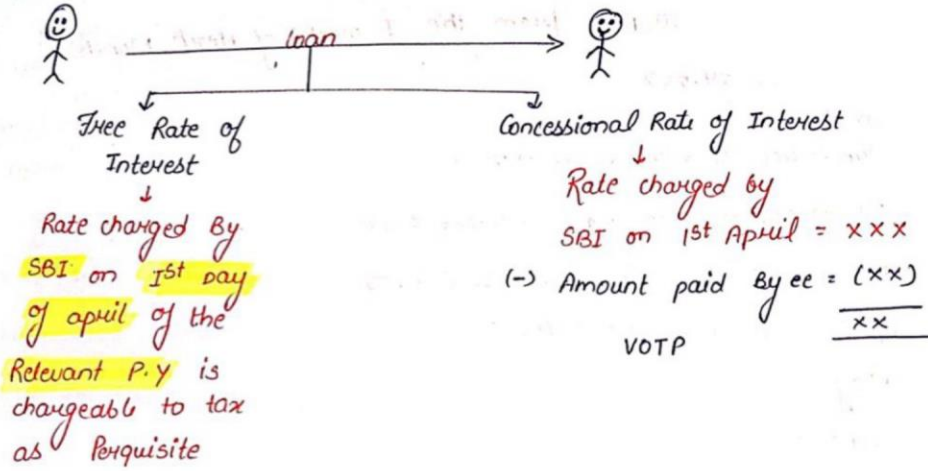 loan
Free Rate of
Interest
↓
Rate charged By
SBI on 1st Day
of april of the
Relevant P.Y is
chargeable to tax
as Perquisite
Concessional Rate of Interest
↓
Rate charged by
SBI on 1st April = xxx
(-) Amount paid By ee = (xx)
xx
VOTP